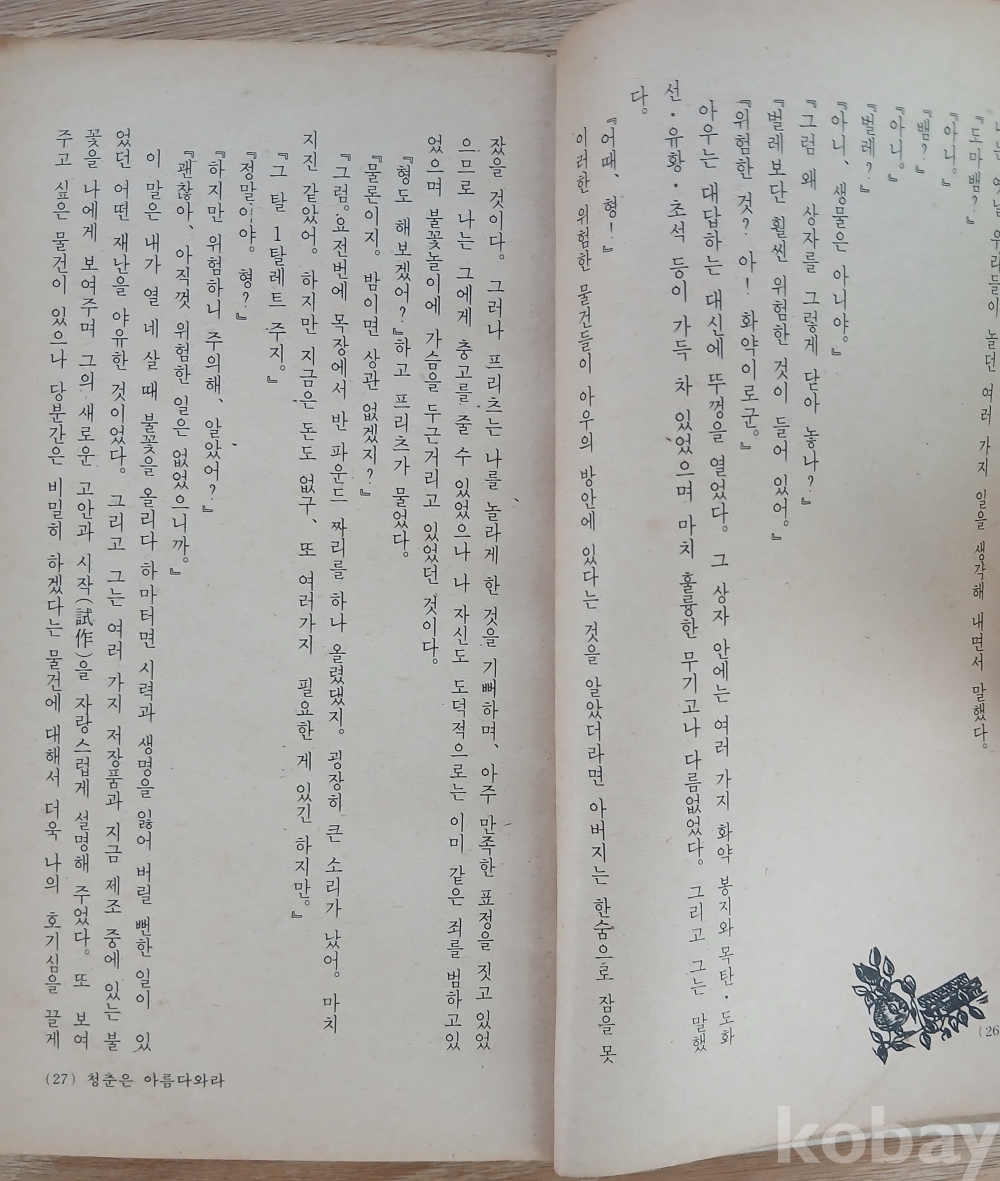 나는 옛날 우리들이 놀던 여러 가지 일을 생각해 내면서 말했다.
『도마뱀?』
『아니。』
『뱀?』
『아니。』
『벌레?』
『아니、 생물은 아니야。』
『그럼 왜 상자를 그렇게 닫아 놓나?』
『벌레보단 훨씬 위험한 것이 들어 있어。』
『위험한 것? 아! 화약이로군。』
아우는 대답하는 대신에 뚜껑을 열었다。 그 상자 안에는 여러 가지 화약 봉지와 목탄・도화
선・유황・초석 등이 가득 차 있었으며 마치 훌륭한 무기고나 다름없었다。 그리고 그는 말했
다。
『어때、 형!』
이러한 위험한 물건들이 아우의 방안에 있다는 것을 알았더라면 아버지는 한숨으로 잠을 못
(26
잤을 것이다。 그러나 프리츠는 나를 놀라게 한 것을 기뻐하며、 아주 만족한 표정을 짓고 있었
으므로 나는 그에게 충고를 줄 수 있었으나 나 자신도 도덕적으로는 이미 같은 죄를 범하고있
었으며 불꽃놀이에 가슴을 두근거리고 있었던 것이다。
『형도 해보겠어?』하고 프리츠가 물었다。
『물론이지。 밤이면 상관 없겠지?』
『그럼。요전번에 목장에서 반 파운드 짜리를 하나 올렸댔지。 굉장히 큰 소리가 났어。 마치
지진 같았어。 하지만 지금은 돈도 없구、 또 여러가지 필요한 게 있긴 하지만。』
『그 탈 1탈레트 주지。』
『정말이야。 형?』
『하지만 위험하니 주의해、 알았어?』
『괜찮아、 아직껏 위험한 일은 없었으니까。』
이 말은 내가 열 네 살 때 불꽃을 올리다 하마터면 시력과 생명을 잃어 버릴 뻔한 일이 있
었던 어떤 재난을 야유한 것이었다。 그리고 그는 여러 가지 저장품과 지금 제조 중에 있는 불
꽃을 나에게 보여주며 그의 새로운 고안과 시작(試作)을 자랑스럽게 설명해 주었다。 또 보여
주고 싶은 물건이 있으나 당분간은 비밀히 하겠다는 물건에 대해서 더욱 나의 호기심을 끌게
(27) 청춘은 아름다와라
kobay